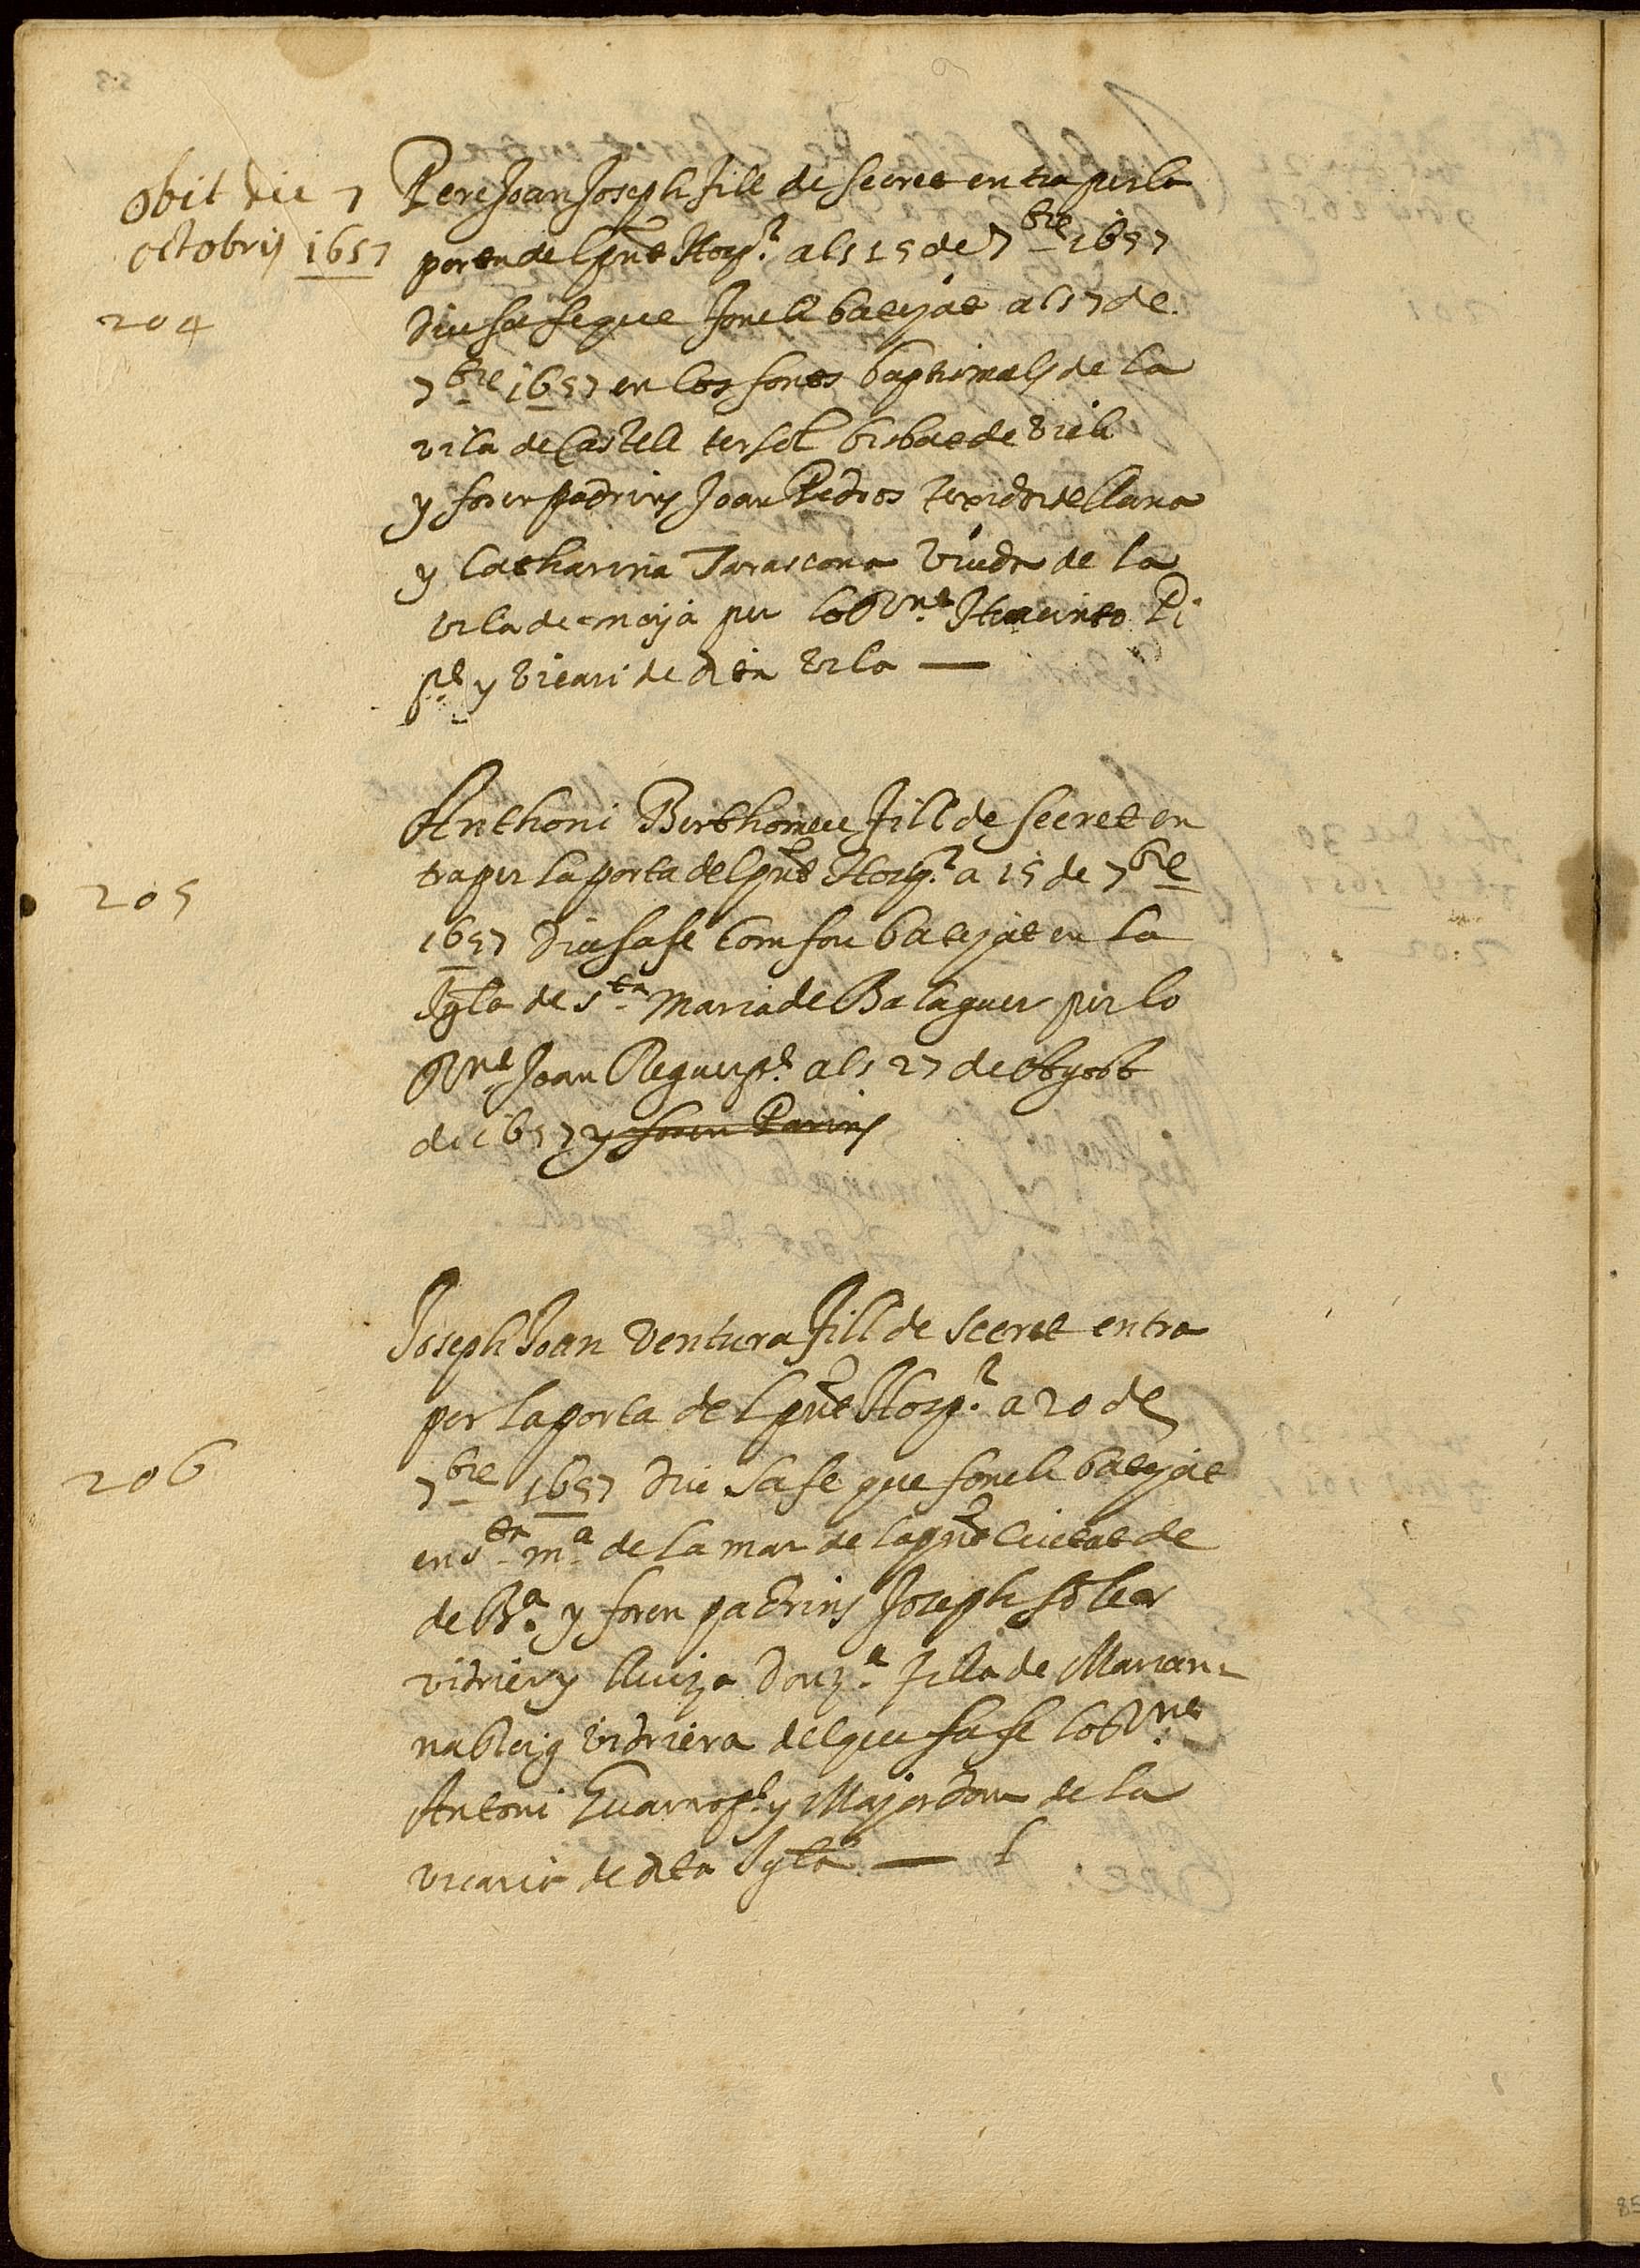 obit die 7
octobris 1657
204
Pere Joan Joseph fill de secret entra per la
porta del pnt Hospl. als 15 de 7bre 1657
diu sa fe que fonch batejat als 7 de
7bre 1657 en los fonts baptismals de la
vila de Castell tersol bisbat de Vich
y foren padrins Joan Pedros texidor de llana
y Catharina Tarascona viuda de la
vila de moya per lo Rnt. Hiacinto Pi
pre. y vicari de dta vila —
205
Anthoni Berthomeu fill de secret en
tra per la porta del pnt Hospl. a 15 de 7bre
1657 diu sa fe com fou batejat en la
Igla de Sta Maria de Balaguer per lo
Rnt Joan Reguer pre. als 27 de
de 1657 y foren Parins
206
Joseph Joan Ventura fill de secret entra
per la porta del pnt Hospl. a 20 de
7bre 1657 diu sa fe que fonch batejat
en Sta Ma de la mar de la pnt Ciutat de
de Ba. y foren padrins Joseph Soler
vidrier y Lluisa donza. filla de Marian-
na Roig vidriera del que fa fe lo Rnt.
Antoni pre. y Majordom de la
vicaria de dta Igla —